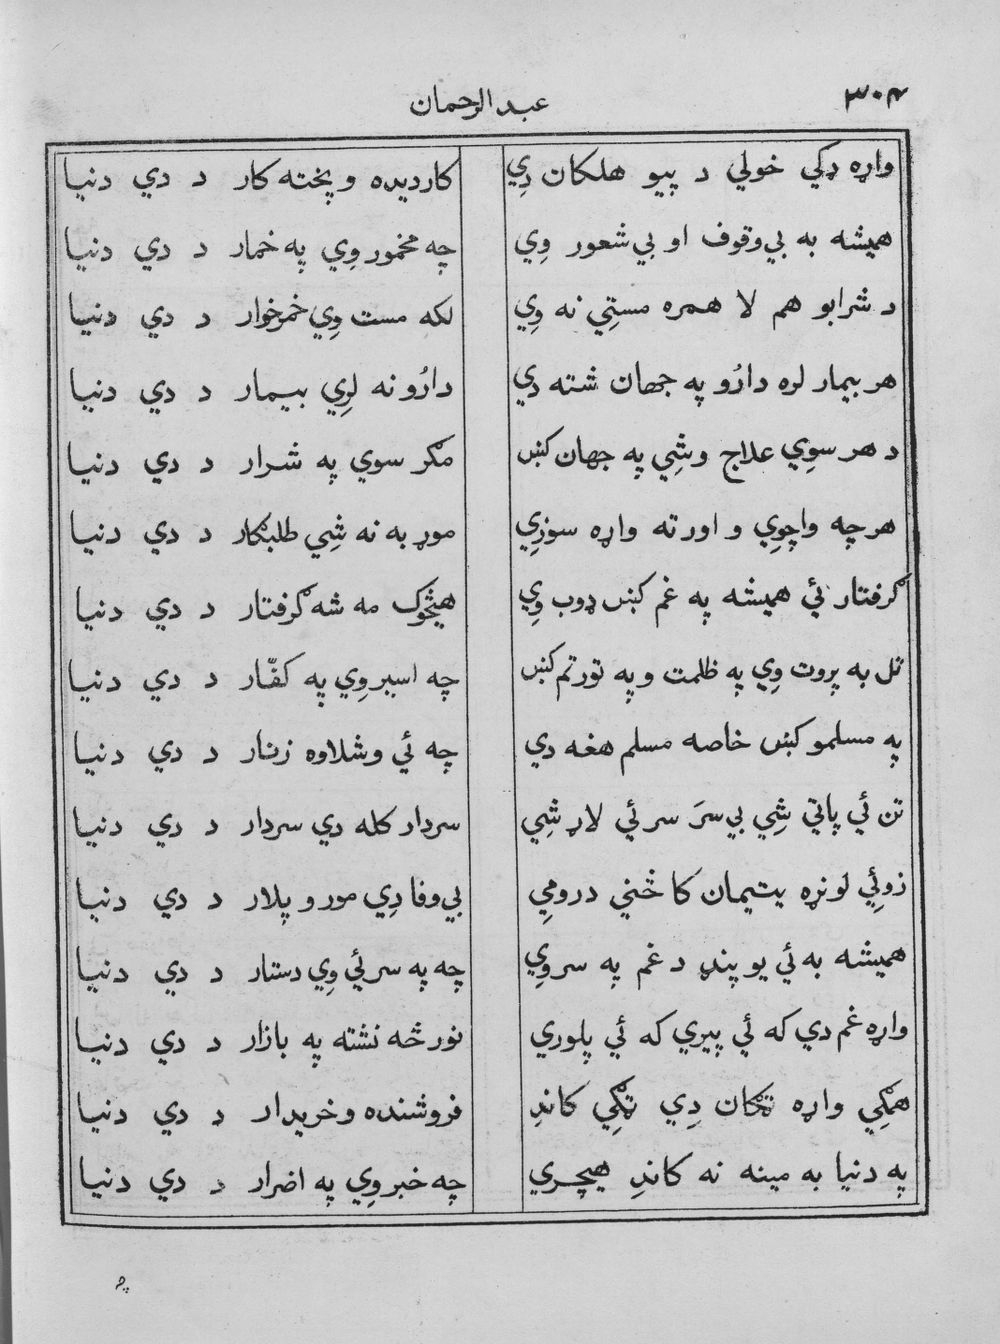 ۳۰۴
عبدالرحمان
واړه ډکي خولي د پيو هلکان دِي کارديده و پخته کار د دي دنيا
هميشه به بي‌وقوف او بي‌شعور وِي چه مخمور وِي په خمار د دي دنيا
د شرابو هم لا همره مستِي نه وِي لکه مست وِي خمرخوار د دي دنيا
هر بيمار لره دارُو په جهان شته دي دارُو نه لرِي بيمار د دي دنيا
د هر سوِي علاج وشِي په جهان کښ مګر سوي په شرار د دي دنيا
هر چه واچوِي و اور ته واړه سوزِي موړ به نه شِي طلبګار د دي دنيا
ګرفتار ئي هميشه په غم کښ ډوب وِي هيڅوک مه شه ګرفتار د دي دنيا
تل به پروت وِي په ظلمت و په تورتم کښ چه اسير وِي په کفّار د دي دنيا
په مسلمو کښ خاصه مسلم هغه دي چه ئي وشلاوه زنار د دي دنيا
تن ئي پاتي شِي بي‌سرَ سر ئي لاړ شِي سردار کله دي سردار د دي دنيا
زوئِي لونړه يتيمان کا ځني درومِي بي‌وفا دِي مور و پلار د دي دنيا
هميشه به ئي يو پنډ د غم په سر وِي چه په سر ئي وِي دستار د دي دنيا
واړه غم دي که ئي پيري که ئي پلوري نور څه نشته په بازار د دي دنيا
همګِي واړه ټګان دِي ټګِي کاندِ فروشنده و خريدار د دي دنيا
په دنيا به مينه نه کاندِ هيچري چه خبر وِي په اضرار د دي دنيا
چه